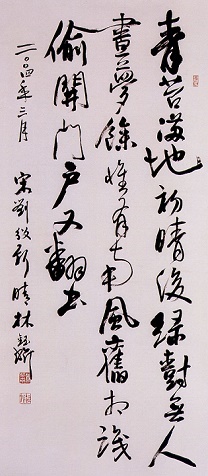 青苔滿地初晴後綠樹無人
晝夢餘惟有南風舊相識
偷開門戶又翻書
二〇〇四年三月 宋劉攽新晴 林